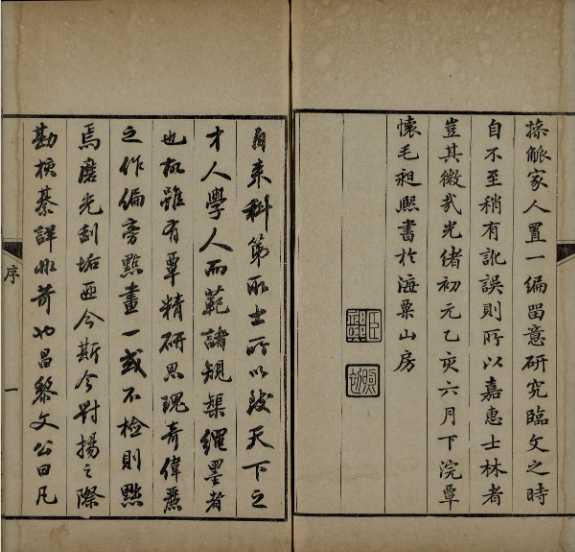 操觚家人置一編留意研究臨文之時
自不至稍有訛誤則所以嘉惠士林者
豈其微哉光緒初元乙亥六月下浣覃
懷毛昶熙書於海粟山房
来科第取士所以致天下之
才人學人而範諸規榘繩墨者
也故雖有覃精研思瑰奇偉麗
之作偏旁點畫一或不檢則黜
焉磨光刮垢匪今斯今對揚之際
勘挍綦詳非苛也昌黎文公曰凡
序
一